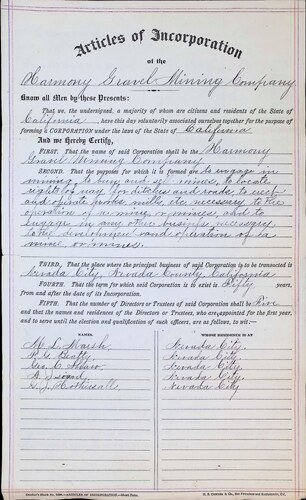 Articles of Incorporation
of the
Harmony Gravel Mining Company
Know all Men by these Presents:
That we, the undersigned, a majority of whom are citizens and residents of the State of
California, have this day voluntarily associated ourselves together for the purpose of
forming a CORPORATION under the laws of the State of California
And we Hereby Certify,
FIRST. That the name of said Corporation shall be the Harmony
Gravel Mining Company
SECOND. That the purposes for which it is formed are to engage in
mining, to buy and sell mines, to locate
rights of way for ditches and roads, to erect
and operate works, mills, etc. necessary to the
operation of a mine, or mines, and to
engage in any other business necessary
to the development and operation of a
mine or mines.
THIRD, That the place where the principal business of said Corporation is to be transacted is
Nevada City, Nevada County, California
FOURTH. That the term for which said Corporation is to exist is Fifty years,
from and after the date of its Incorporation.
FIFTH. That the number of Directors or Trustees of said Corporation shall be Five
and that the names and residences of the Directors or Trustees, who are appointed for the first year,
and to serve until the election and qualification of such officers, are as follows, to wit:
NAMES. RESIDENCE.
M. L. Marsh Nevada City.
P. G. Beatty Nevada City.
Geo. C. Shaw Nevada City.
A. Isoard Nevada City.
Nevada City
ARTICLES OF INCORPORATION